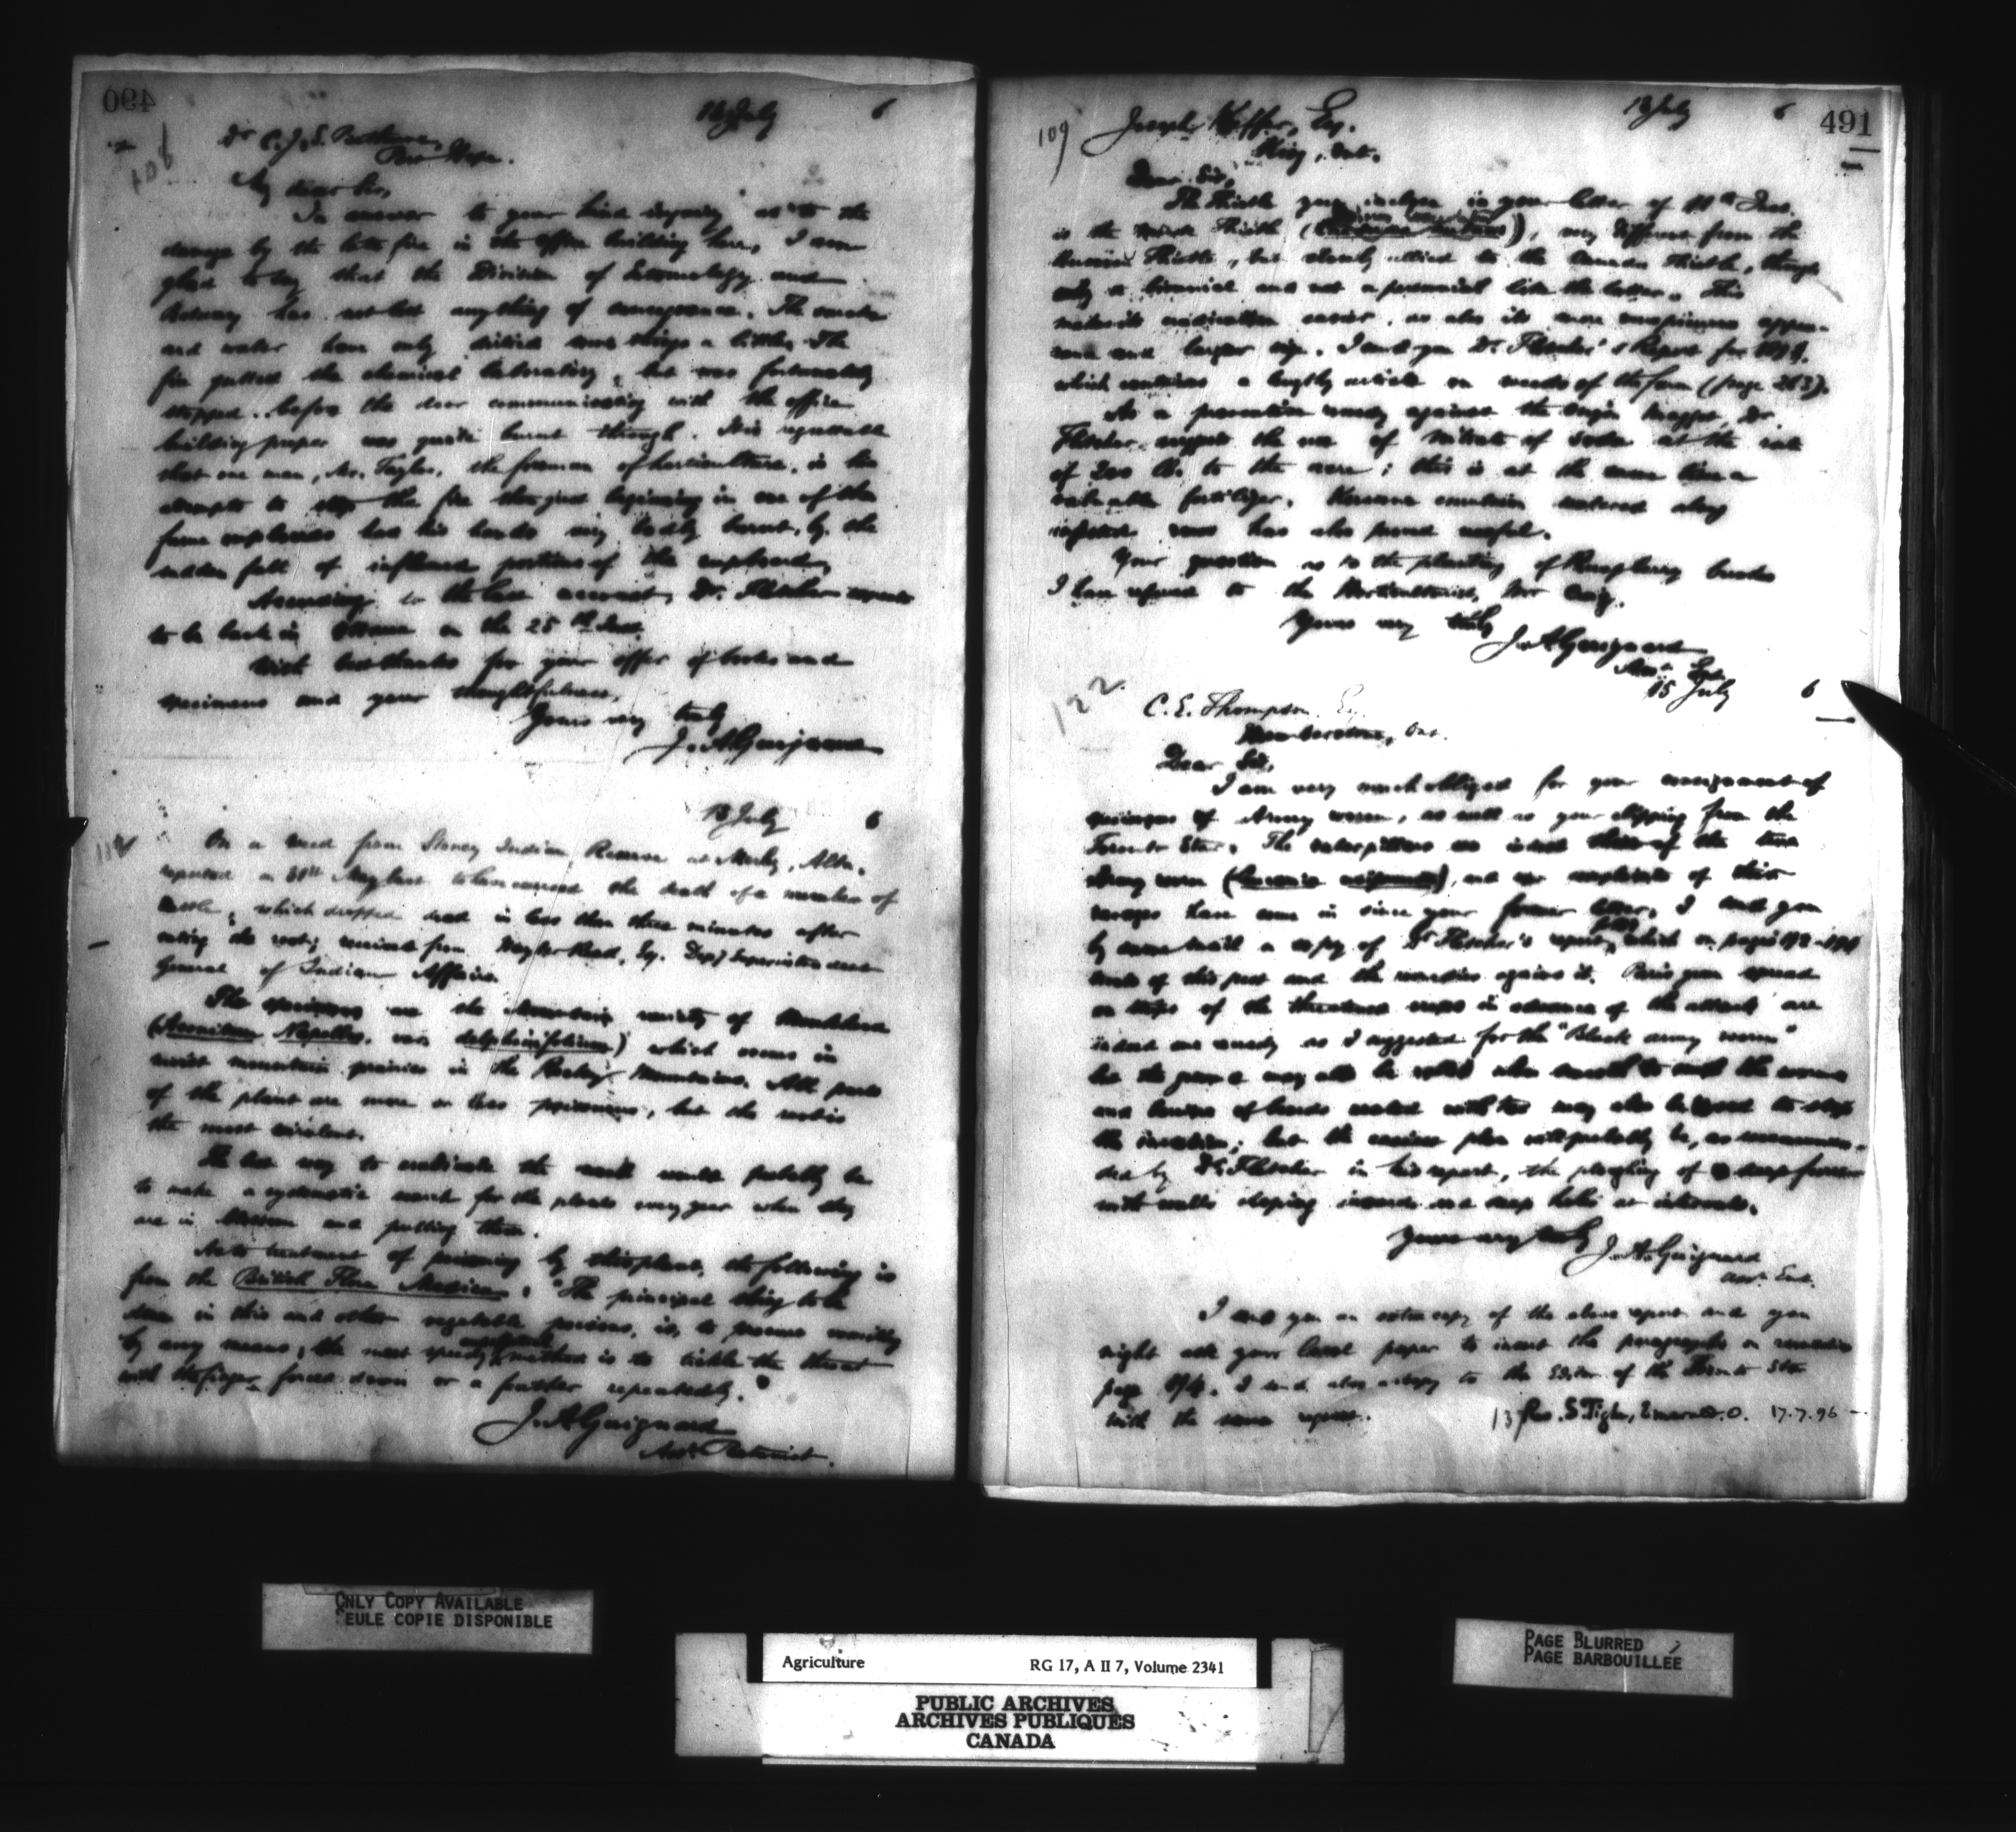 490
108
13 July 6
Dr C. J. S. Bethune,
Port Hope.
My dear Sir,
In answer to your kind inquiry as to the
damage by the late fire in the office building here, I am
glad to say that the Division of Entomology and
Botany has not lost anything of consequence. The smoke
and water have only soiled some things a little. The
fire gutted the chemical laboratory, but was fortunately
stopped before the door communicating with the office
building proper was quite burnt through. It is regrettable
that one man, Mr. Taylor, the foreman of horticulture, in his
attempts to stop the fire then just beginning in one of the
fume cupboards has his hands very badly burnt by the
sudden fall of inflamed portions of the cupboard.
According to the last account, Dr. Fletcher expects
to be back in Ottawa on the 25th Inst.
With best thanks for your offer of books and
specimens and your thoughtfulness,
Yours very truly
J. A. Guignard
13 July 6
On a weed from Stoney Indian Reserve at Morley, Alta.
reported on to have caused the death of a number of
cattle, which dropped dead in less than three minutes after
eating the root; received from Hayter Reed, Esq. Depy Superintendent
General of Indian Affairs.
The specimens are the mountain variety of Monkshood
(Aconitum Napellus, var. delphinifolium) which occurs in
moist mountain prairies in the Rocky Mountains. All parts
of the plant are more or less poisonous, but the root is
the most virulent.
The best way to eradicate the weed would probably be
to make a systematic search for the plants every year when they
are in blossom and pulling them.
As to treatment of poisoning by this plant, the following is
from the British Flora Medica: "The principal thing to be
done in this and other vegetable poisons, is, to procure vomiting
by any means; the most speedy method is to tickle the throat
with the finger forced down or a feather repeatedly."
J. A. Guignard
Asst Botanist.
491
109
13 July 6
Joseph Kiffer, Esq.
King, Ont.
Dear Sir,
The Thistle you inclose in your letter of 11th Inst.
is the Thistle, very different from the
Russian Thistle, but closely allied to the Canada Thistle, though
only a biennial and not a perennial like the latter. This
makes its eradication easier, as also its more conspicuous appear-
ance and larger size. I send you Dr. Fletcher's Report for
which contains a lengthy article on weeds of the farm (page 263).
As a preventive remedy against the Onion Maggot, Dr.
Fletcher suggests the use of Nitrate of Soda at the rate
of 200 lb. to the acre; this is at the same time a
valuable fertilizer. Kerosene emulsion watered along
infested rows has also proved useful.
Your question as to the planting of Raspberry bushes
I have referred to the Horticulturist, Mr Craig.
Yours very truly
J. A. Guignard
Asst Ent.
15 July 6
122
C. E. Thompson Esq.
Ont.
Dear Sir,
I am very much obliged for your consignment of
specimens of Army worm, as well as your clipping from the
Toronto Star. The caterpillars are indeed those of the true
Army worm (Leucania unipuncta), and complaints of their
ravages have come in since your former letter. I send you
by same mail a copy of Dr Fletcher's report, which on pages 192-194
treats of this pest and the remedies against it. Paris green spread
on strips of the threatened crops in advance of the attack are
indeed one remedy as I suggested for the "Black army worm"
but the ground may also be rolled when smooth to crush the worms
and fences of boards coated with tar may also be used to stop
the invasion; but the easiest plan will probably be, as recommen-
ded by Dr. Fletcher in his report, the ploughing of a deep furrow
with walls sloping inwards and deep holes at intervals.
Yours very truly
J. A. Guignard
Asst. Ent.
I send you an extra copy of the above report and you
might ask your local paper to insert the paragraphs on remedies
page 194. I send also a copy to the Editor of the Toronto Star
with the same request.
17.7.96
ONLY COPY AVAILABLE
SEULE COPIE DISPONIBLE
Agriculture RG 17, A II 7, Volume 2341
PUBLIC ARCHIVES
ARCHIVES PUBLIQUES
CANADA
PAGE BLURRED
PAGE BARBOUILLÉE